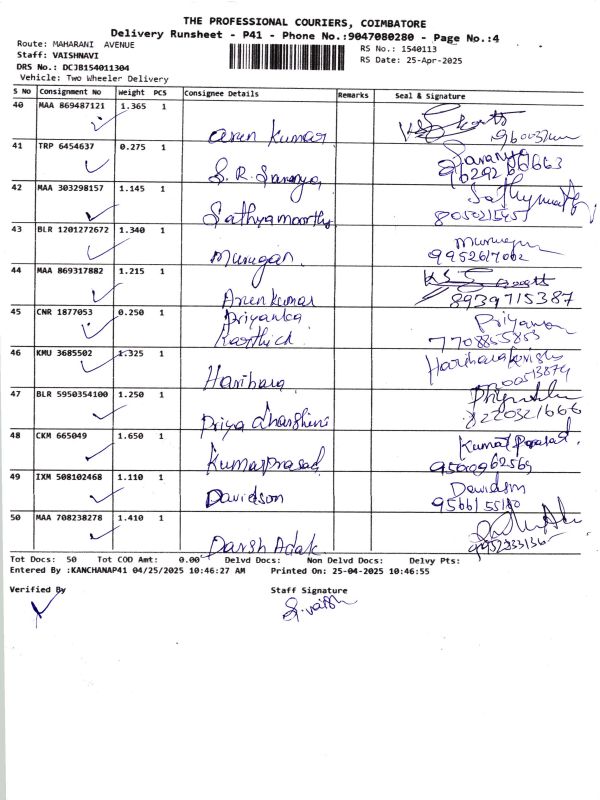 THE PROFESSIONAL COURIERS, COIMBATORE
Delivery Runsheet - P41 - Phone No.:9047080280 - Page No.:4
Route: MAHARANI AVENUE
RS No.: 1540113
Staff: VAISHNAVI
RS Date: 25-Apr-2025
DRS No.: DCJB154011304
Vehicle: Two Wheeler Delivery
S No Consignment No Weight PCS Consignee Details Remarks Seal & Signature
40 MAA 869487121 1.365 1
arun kumar
41 TRP 6454637 0.275 1
S.R. Saranya
Saranya
42 MAA 303298157 1.145 1
Sathyamoorthy
43 BLR 1201272672 1.340 1
Murugan
Murugan
9952617062
44 MAA 869317882 1.215 1
Arunkumar
8939715387
45 CNR 1877053 0.250 1
Priyanka
Karthick
Priyanka
7708855853
46 KMU 3685502 1.325 1
Harihara
47 BLR 5950354100 1.250 1
Priya dharshini
8220321666
48 CKM 665049 1.650 1
Kumarprasad
Kumar Prasad.
49 IXM 508102468 1.110 1
Davidson
Davidson
50 MAA 708238278 1.410 1
Darsh Adak
Tot Docs: 50 Tot COD Amt: 0.00 Delvd Docs: Non Delvd Docs: Delvy Pts:
Entered By :KANCHANAP41 04/25/2025 10:46:27 AM Printed On: 25-04-2025 10:46:55
Verified By Staff Signature
S.vaish